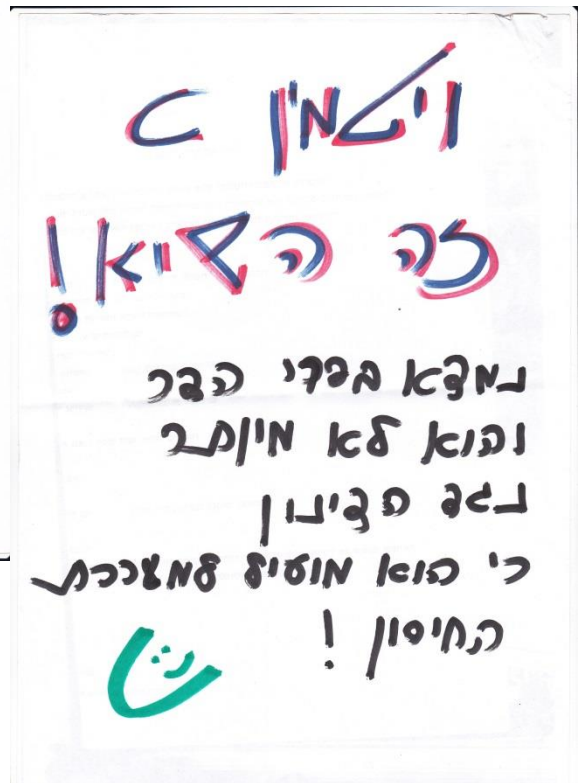 ויטמין C
זה השיא!
נמצא בפרי הדר
והוא לא מיותר
נגד הצינון
כי הוא מועיל למערכת
החיסון!